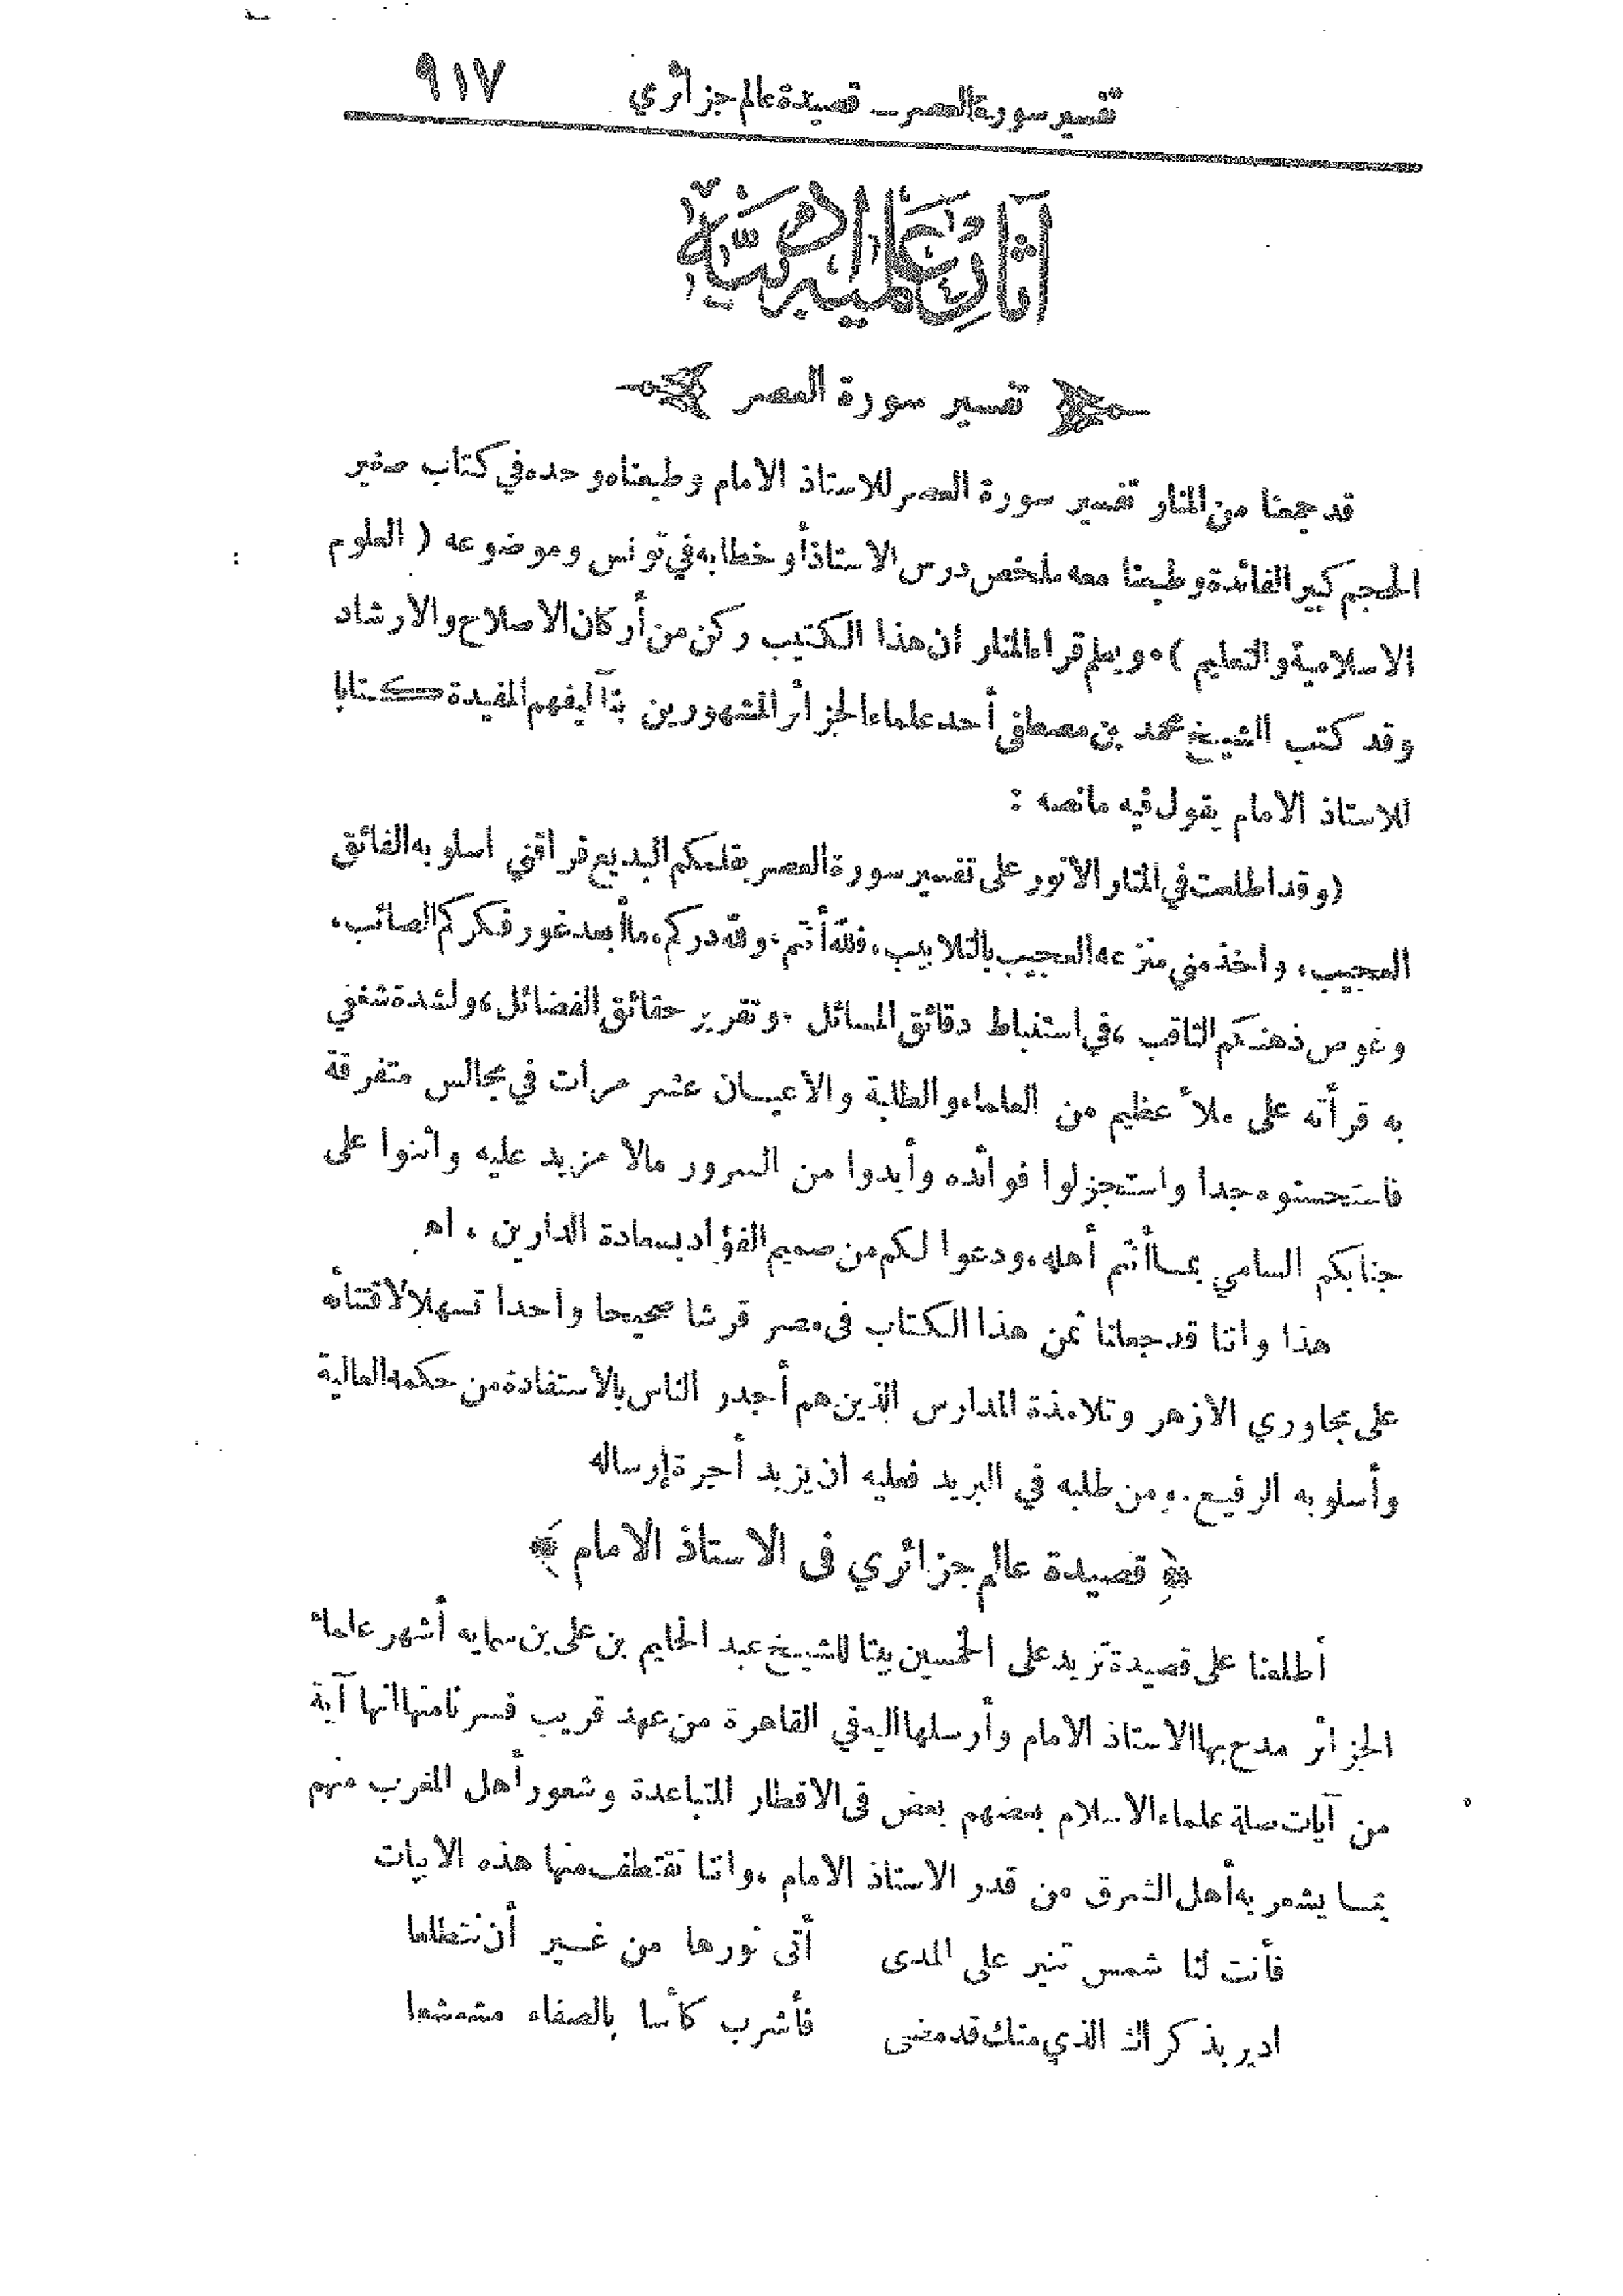 تفسير سورة العصر — قصيدة عالم جزائري ٩١٧
آثار علمية أدبية
تفسير سورة العصر
قد جمعنا من المنار تفسير سورة العصر للاستاذ الامام وطبعناه وحده في كتاب صغير
الحجم كبير الفائدة وطبعنا معه ملخص درس الاستاذ أو خطابه في تونس وموضوعه ( العلوم
الاسلامية والتعليم ) . ويعلم قراء المنار ان هذا الكتيب ركن من أركان الاصلاح والارشاد
وقد كتب الشيخ محمد بن مصطفى أحد علماء الجزائر المشهورين بتآليفهم المفيدة كتابا
للاستاذ الامام يقول فيه مانصه :
(وقد اطلعت في المنار الانور على تفسير سورة العصر بقلمكم البديع فراقني اسلوبه الفائق
العجيب ، واخذ مني منزعه العجيب بالتلابيب ، فلله أنتم . ولله دركم ، ما أبعد غور فكركم الصائب ،
وغوص ذهنكم الثاقب ، في استنباط دقائق المسائل . وتقرير حقائق الفضائل ، ولشدة شغفي
به قرأته على ملأ عظيم من العلماء والطلبة والاعيان عشر مرات في مجالس متفرقة
فاستحسنوه جدا واستجزلوا فوائده وأبدوا من السرور مالا مزيد عليه واثنوا على
جنابكم السامي بما أنتم أهله ، ودعوا لكم من صميم الفؤاد بسعادة الدارين . اهـ
هذا واننا قد جعلنا ثمن هذا الكتاب في مصر قرشا صحيحا واحدا تسهيلا لاقتنائه
على مجاوري الازهر وتلامذة المدارس الذين هم أجدر الناس بالاستفادة من حكمه العالية
وأسلوبه الرفيع . ومن طلبه في البريد فعليه ان يزيد أجرة إرساله
﴿ قصيدة عالم جزائري في الاستاذ الامام ﴾
أطلعنا على قصيدة تزيد على الخمسين بيتا للشيخ عبد الحليم بن علي بن سمايه أشهر علماء
الجزائر مدح بها الاستاذ الامام وأرسلها اليه في القاهرة من عهد قريب فسرنا منها انها آية
من آيات صلة علماء الاسلام بعضهم ببعض في الاقطار المتباعدة وشعور أهل المغرب منهم
بما يشعر به أهل الشرق من قدر الاستاذ الامام ، واننا نقتطف منها هذه الابيات
فأنت لنا شمس تنير على المدى أتى نورها من غير أن نتطلعا
ادير بذكراك الذي منك قد مضى فأشرب كأسا بالصفاء مشعشعا